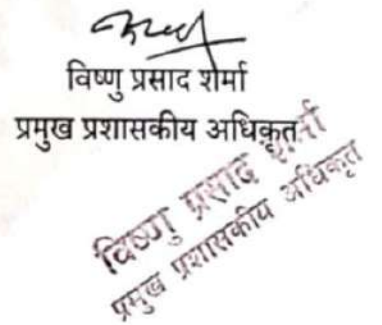 विष्णु प्रसाद शर्मा
प्रमुख प्रशासकीय अधिकृत
विष्णु प्रसाद शर्मा
प्रमुख प्रशासकीय अधिकृत